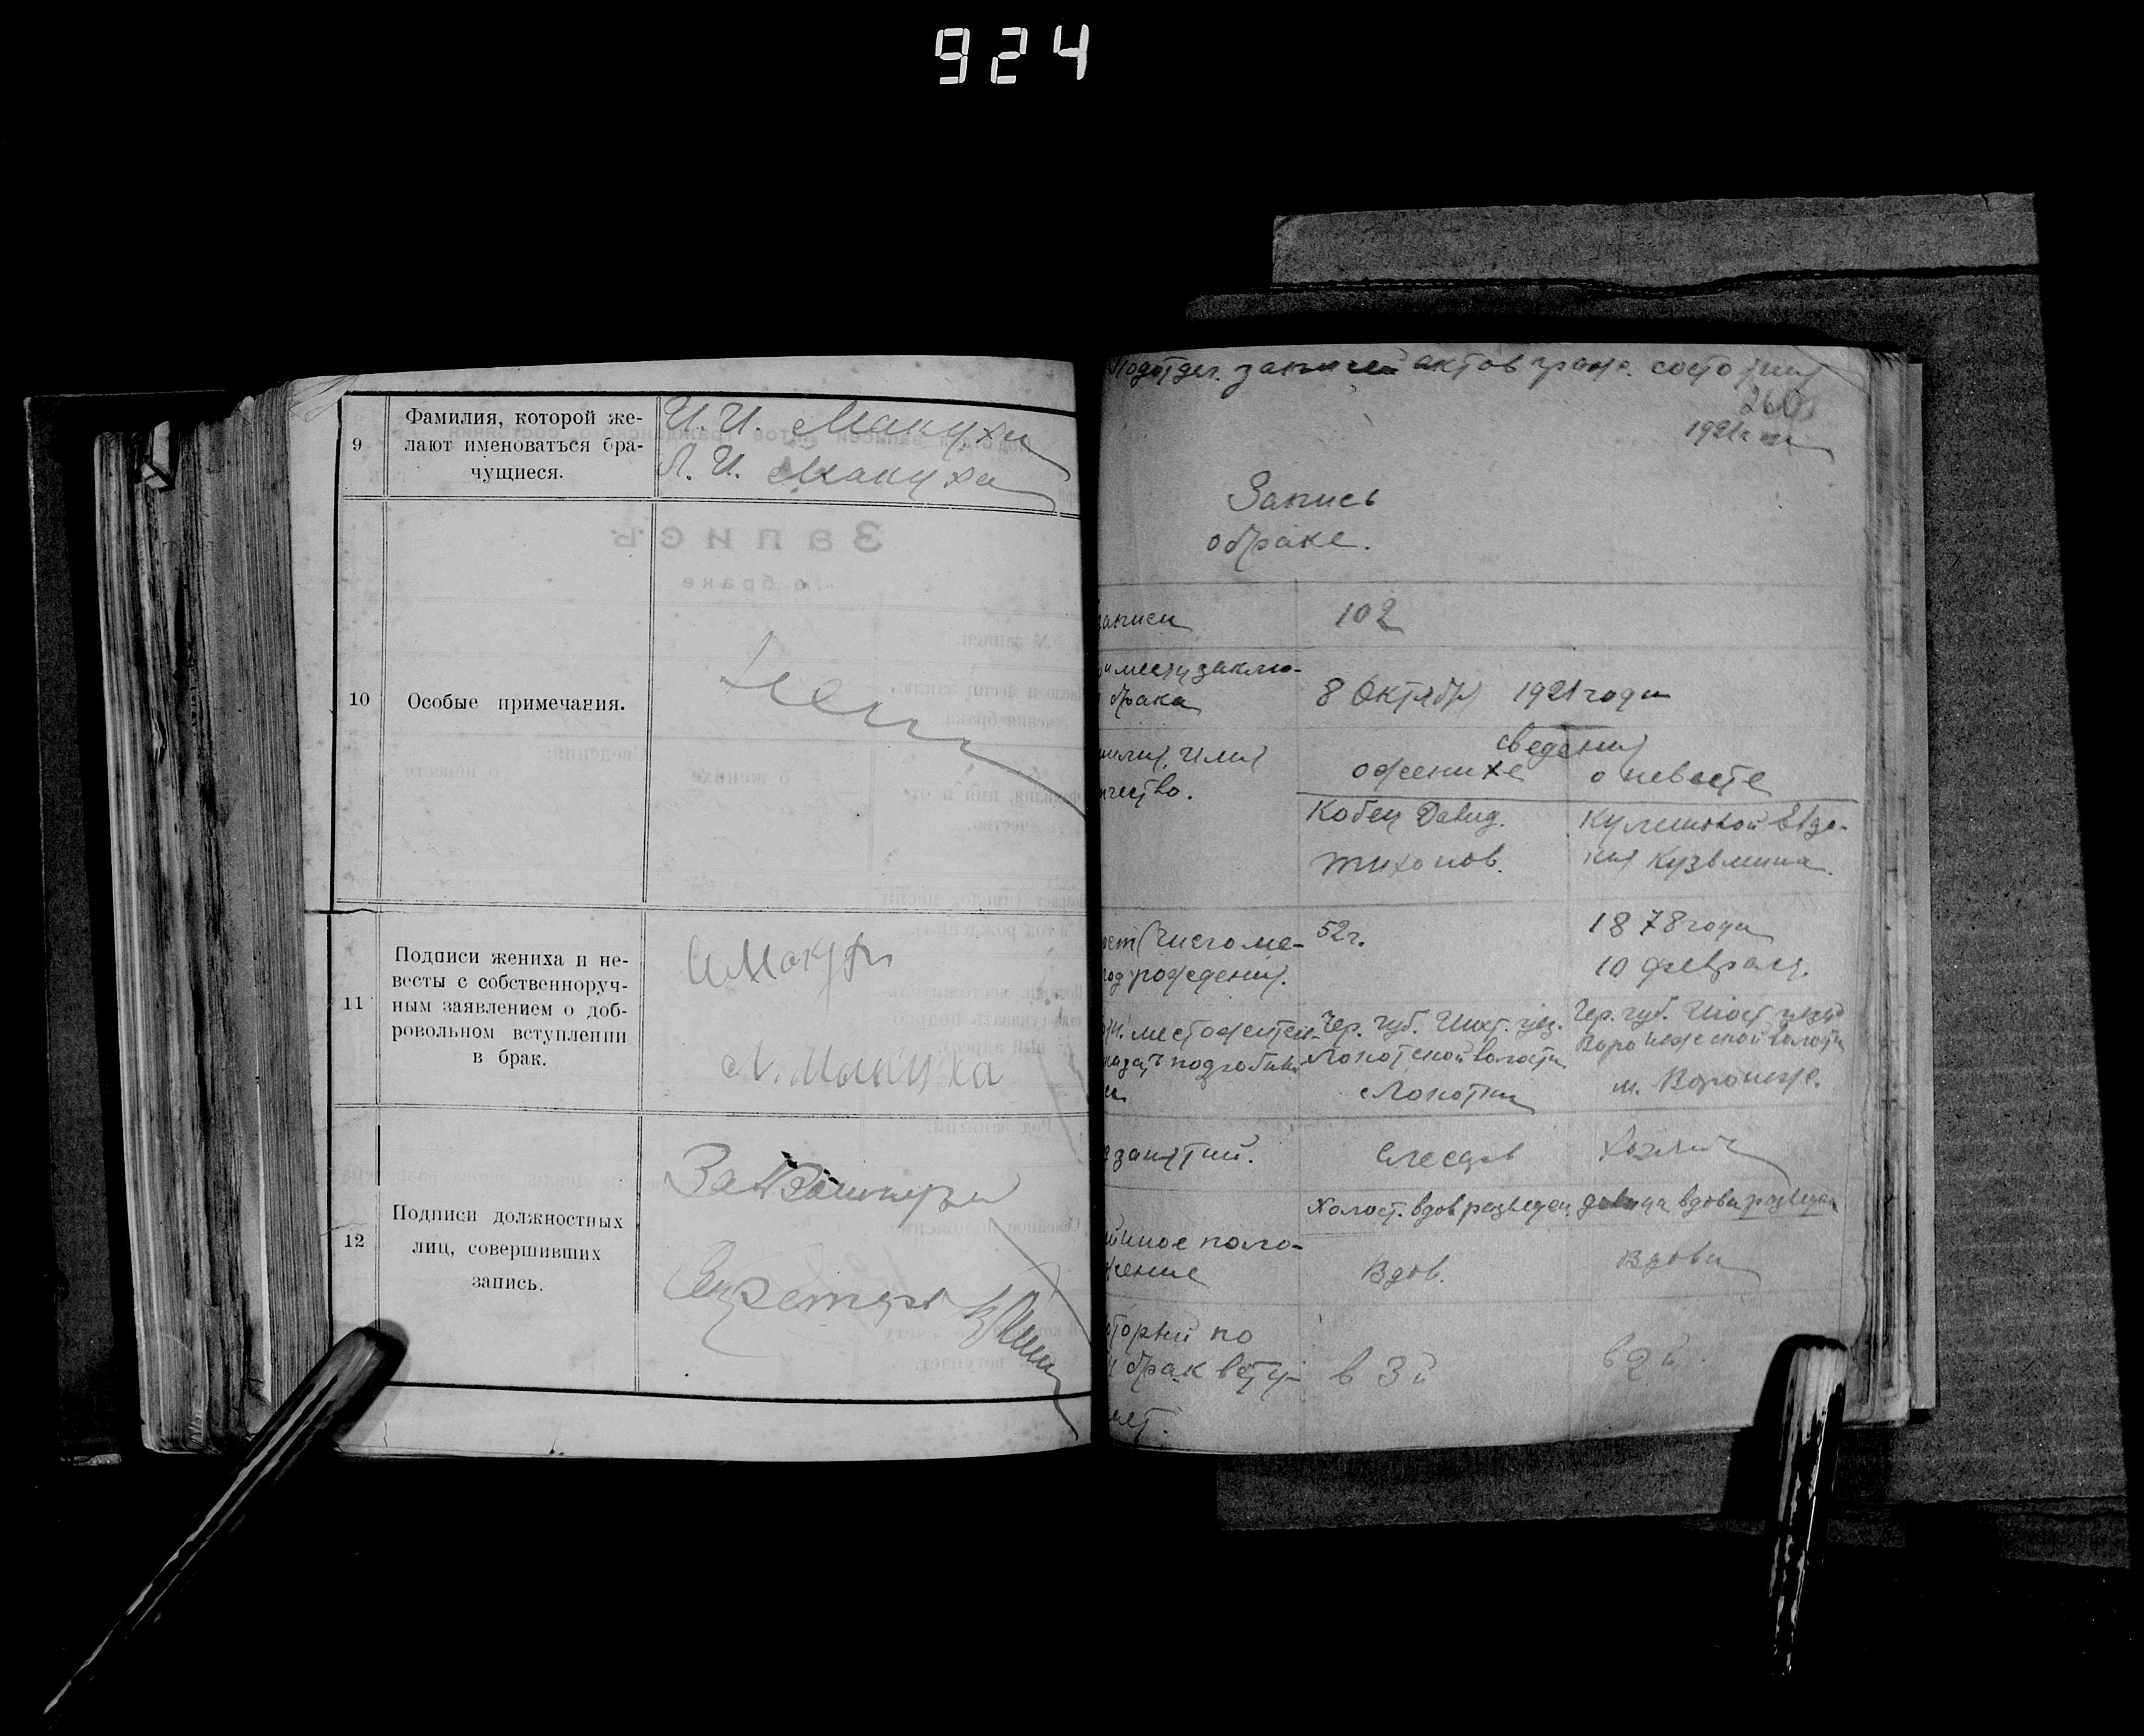 924
9
Фамилия, которой же-
лают именоваться бра-
чущиеся.
И. И. Макуха
Л. И. Макуха
10
Особые примечания.
Нет
11
Подписи жениха и не-
весты с собственноруч-
ным заявлением о доб-
ровольном вступлении
в брак.
И Макуха
Л. Макуха
12
Подписи должностных
лиц, совершивших
запись.
Зав
Секретарь
Подотдел. записей актов граж. состояния
260
1921 г.
Запись
о браке.
записи
102
месяц заклю-
брака
8 Октября 1921 года
сведения
о женихе
о невесте
милия, имя
чество.
Кобец Давид.
Тихонов.
Кулешовой Евдо-
кия Кузьмина.
аст (число ме-
год рождения.
52 г.
1878 года
10 февраля.
местожитель-
указать подробный
Чер. губ. Шост. уез.
Локотской волости
с Локотки
Чер. губ. Шост уезда
Воронежской волости
м. Воронеж.
занятий.
Слесарь
Хозяйч
Холост. вдов разведен
девица вдова разведен
ейное поло-
жение
Вдов.
Вдова
оторый по
брак всту-
ает.
в 3й
в 2й